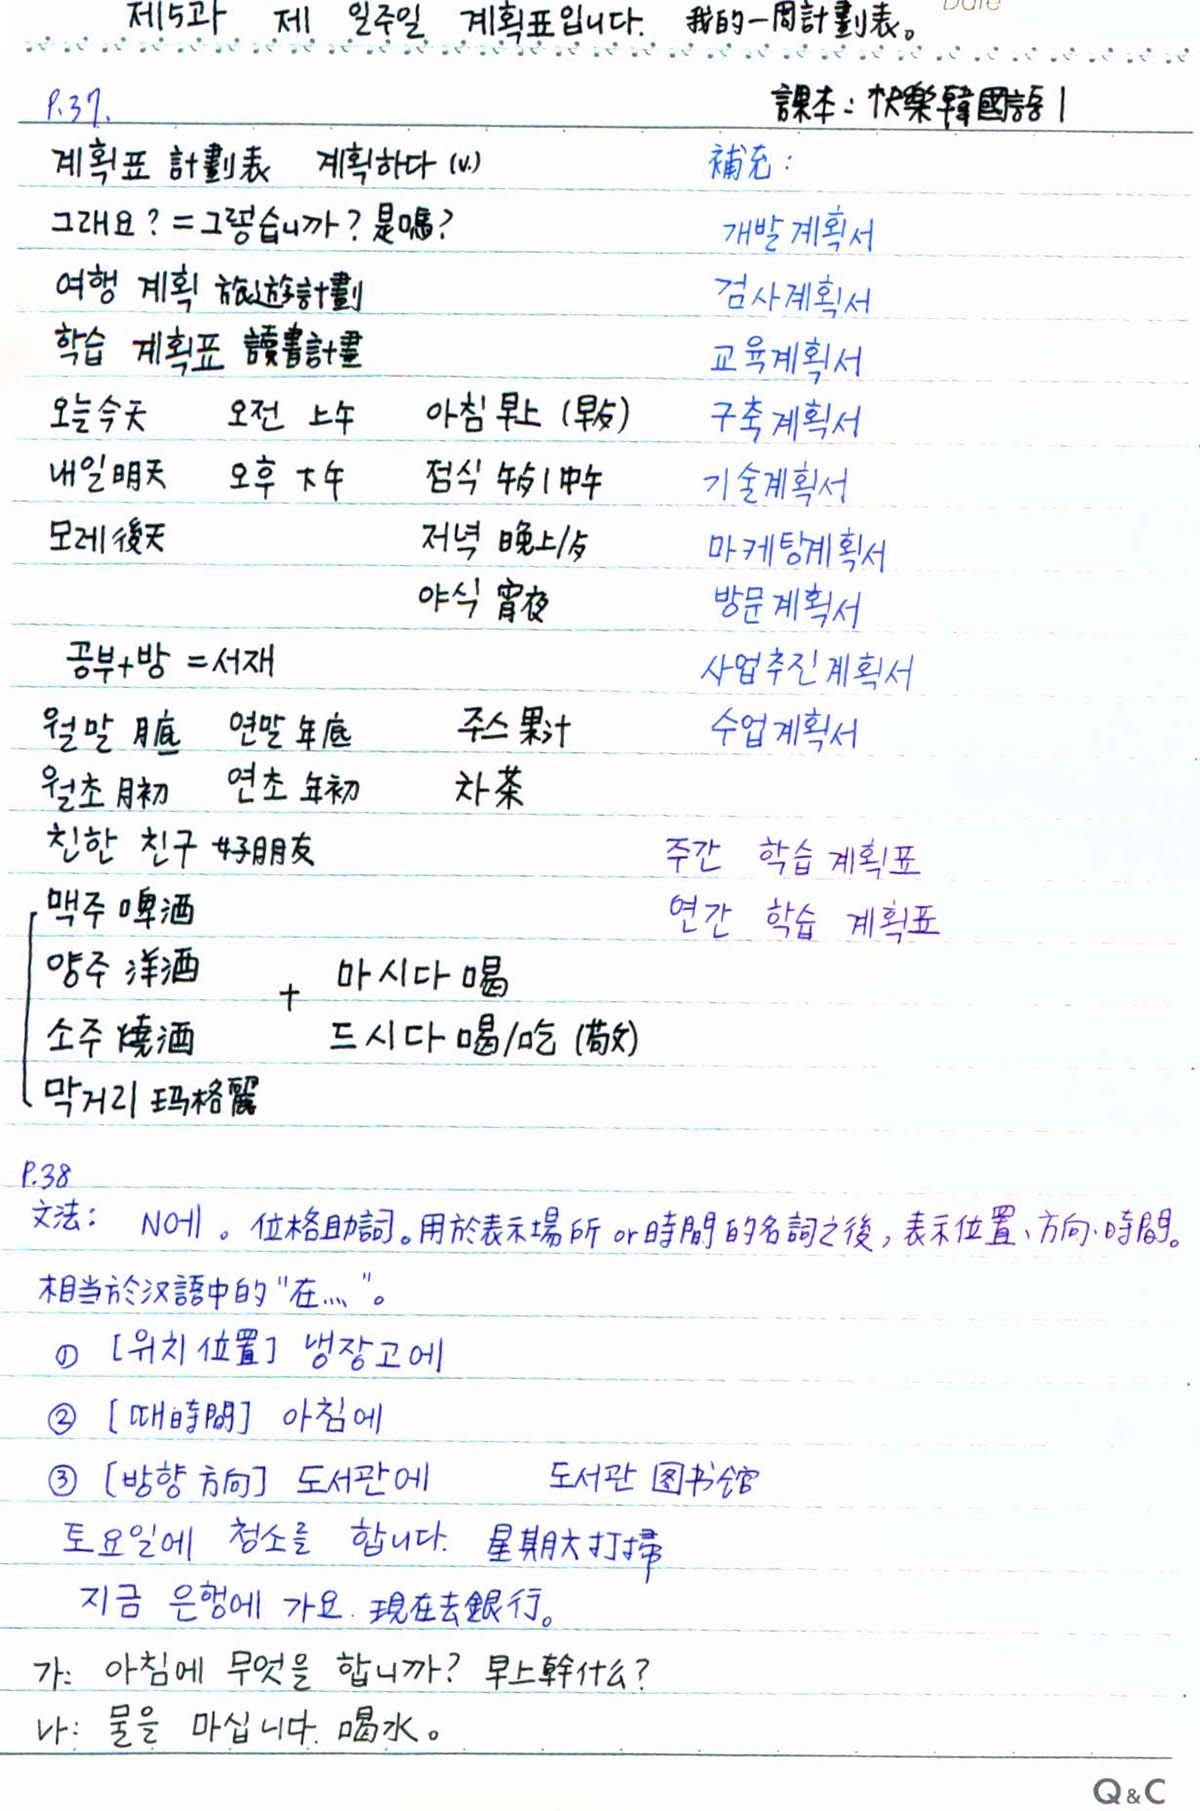 제5과 제 일주일 계획표입니다. 我的一周計劃表。 Date
P.37. 課本: 快樂韓國語1
계획표 計劃表 계획하다 (v.) 補充:
그래요? = 그렇습니까? 是嗎? 개발계획서
여행 계획 旅遊計劃 검사계획서
학습 계획표 讀書計畫 교육계획서
오늘今天 오전 上午 아침 早上 (早歺) 구축계획서
내일明天 오후 下午 점식 午歺/中午 기술계획서
모레後天 저녁 晚上/歺 마케팅계획서
야식 宵夜 방문계획서
공부+방 = 서재 사업추진계획서
월말 月底 연말 年底 주스 果汁 수업계획서
월초 月初 연초 年初 차 茶
친한 친구 好朋友 주간 학습 계획표
맥주 啤酒 연간 학습 계획표
양주 洋酒 + 마시다 喝
소주 燒酒 드시다 喝/吃 (敬)
막거리 玛格麗
P.38
文法: N에 。位格助詞。用於表示場所 or 時間的名詞之後,表示位置、方向、時間。
相当於汉語中的"在..."。
① [위치 位置] 냉장고에
② [때時間] 아침에
③ [방향 方向] 도서관에 도서관 图书馆
토요일에 청소를 합니다. 星期六打掃
지금 은행에 가요. 現在去銀行。
가: 아침에 무엇을 합니까? 早上幹什么?
나: 물을 마십니다. 喝水。
Q&C